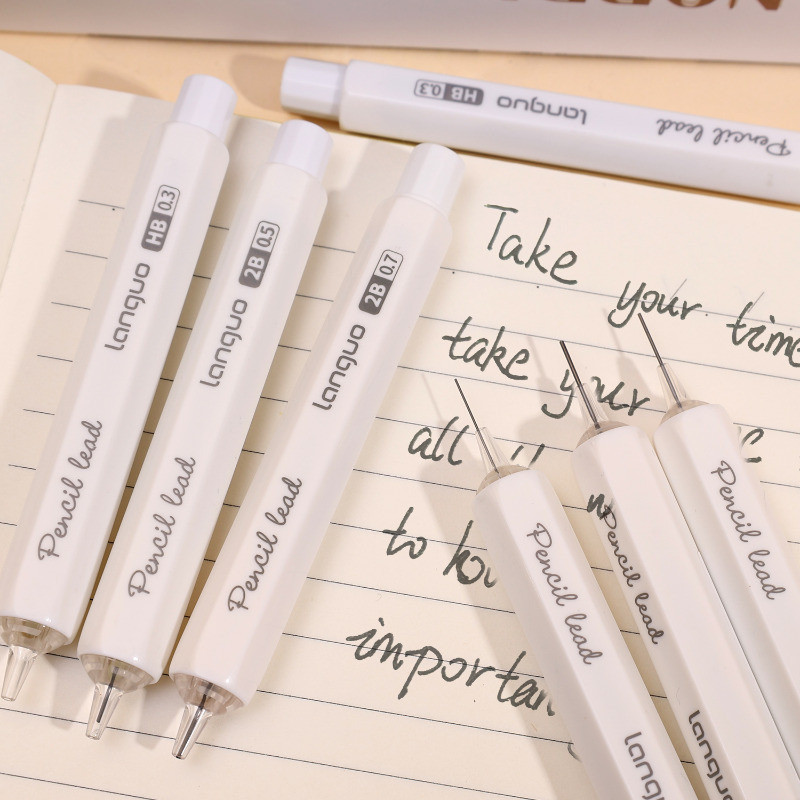 HB 0.3
languo
Pencil lead
2B 0.5
languo
Pencil lead
2B 0.7
languo
Pencil lead
HB 0.3
languo
Pencil lead
Take your time
take your
all
to
important
Pencil lead
languo
Pencil lead
languo
Pencil lead